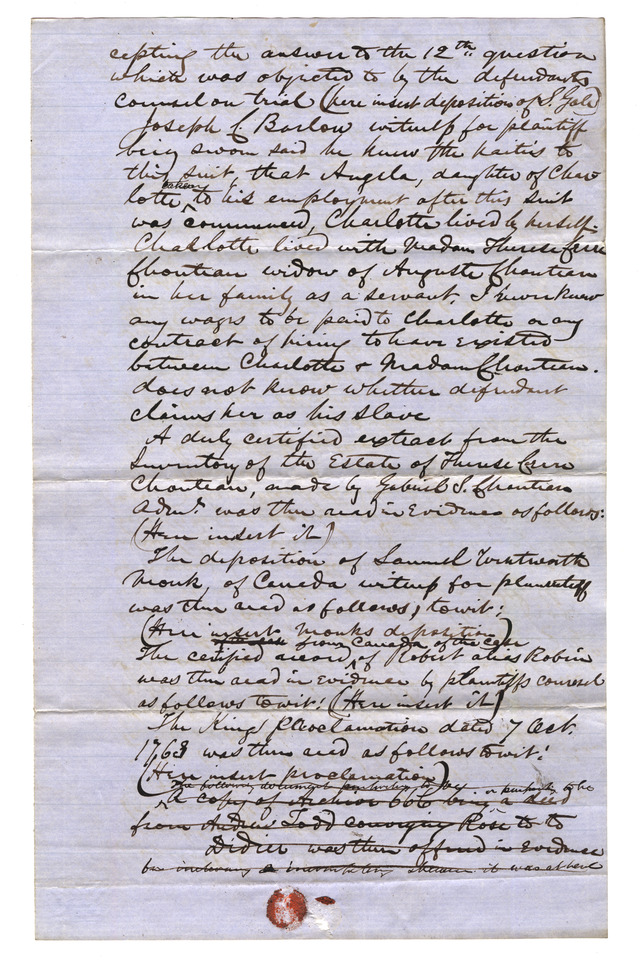 cepting the answer to the 12th question
which was objected to by the defendants
counsel on trial (here insert deposition of S. Gale)
Joseph C. Barlow witness for plaintiff
being sworn said he knew the parties to
this suit, that Angela, daughter of Char
lotte, to his employment after this suit
was commenced, Charlotte lived by herself.
Charlotte lived with Madam Therese Cerre
Chouteau widow of Auguste Chouteau
in her family as a servant. I never knew
any wages to be paid to Charlotte or any
contract of hiring to have existed
between Charlotte & Madam Chouteau.
does not know whether defendant
claims her as his slave
A duly certified extract from the
Inventory of the Estate of Therese Cerre
Chouteau, made by Gabriel S. Chouteau
Admr. was then read in Evidence as follows:
(Here insert it)
The deposition of Samuel Wentworth
Monk, of Canada witness for plaintiff
was then read as follows, towit:
(Here insert Monks deposition)
from Canada of the case
The certified record, of Robert alias Robin
was then read in Evidence by plaintiffs counsel
as follows towit: (Here insert it)
The Kings Proclamation dated 7 Oct.
1763 was then read as follows towit:
(Here insert proclamation)
The following document purporting to be
or purports to be
A copy of Archive being a deed
from Todd conveying Rose to to
Didier was then offered in Evidence
it was